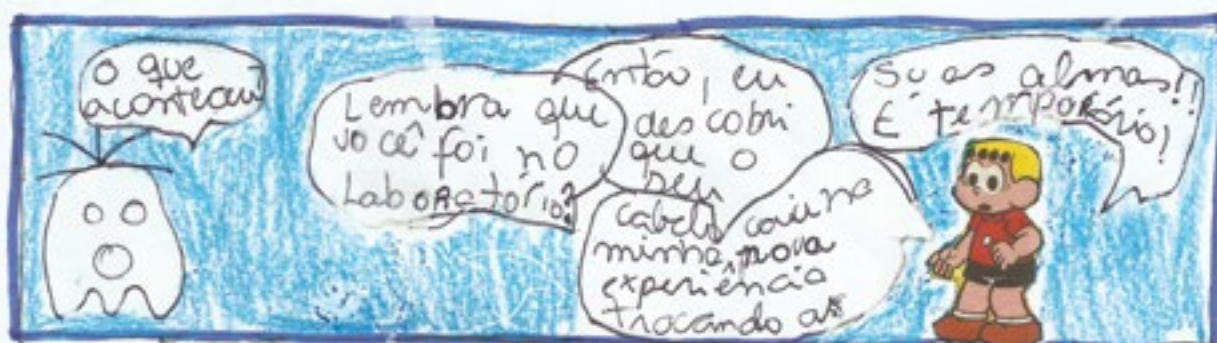 O que
aconteceu?
Lembra que
você foi no
Laboratório?
Então, eu
descobri
que o
seu
cabelo caiu na
minha nova
experiência
trocando as
suas almas!!
É temporário!